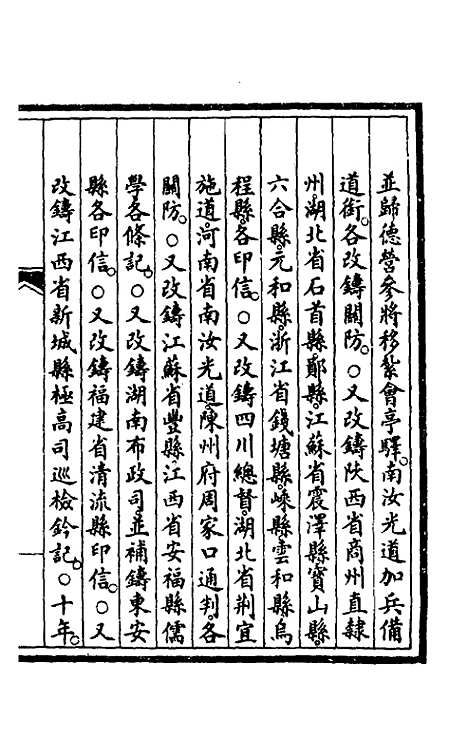 並歸德營參將移紮會亭驛。南汝光道加兵備
道銜。各改鑄關防。○又改鑄陜西省商州直隸
州。湖北省石首縣。鄖縣。江蘇省震澤縣。寶山縣。
六合縣。元和縣。浙江省錢塘縣。嵊縣。雲和縣。烏
程縣。各印信。○又改鑄四川總督。湖北省荆宜
施道。河南省南汝光道。陳州府周家口通判。各
關防。○又改鑄江蘇省豐縣。江西省安福縣儒
學各條記。○又改鑄湖南布政司。並補鑄東安
縣各印信。○又改鑄福建省清流縣印信。○又
改鑄江西省新城縣極高司巡檢鈐記。○十年。